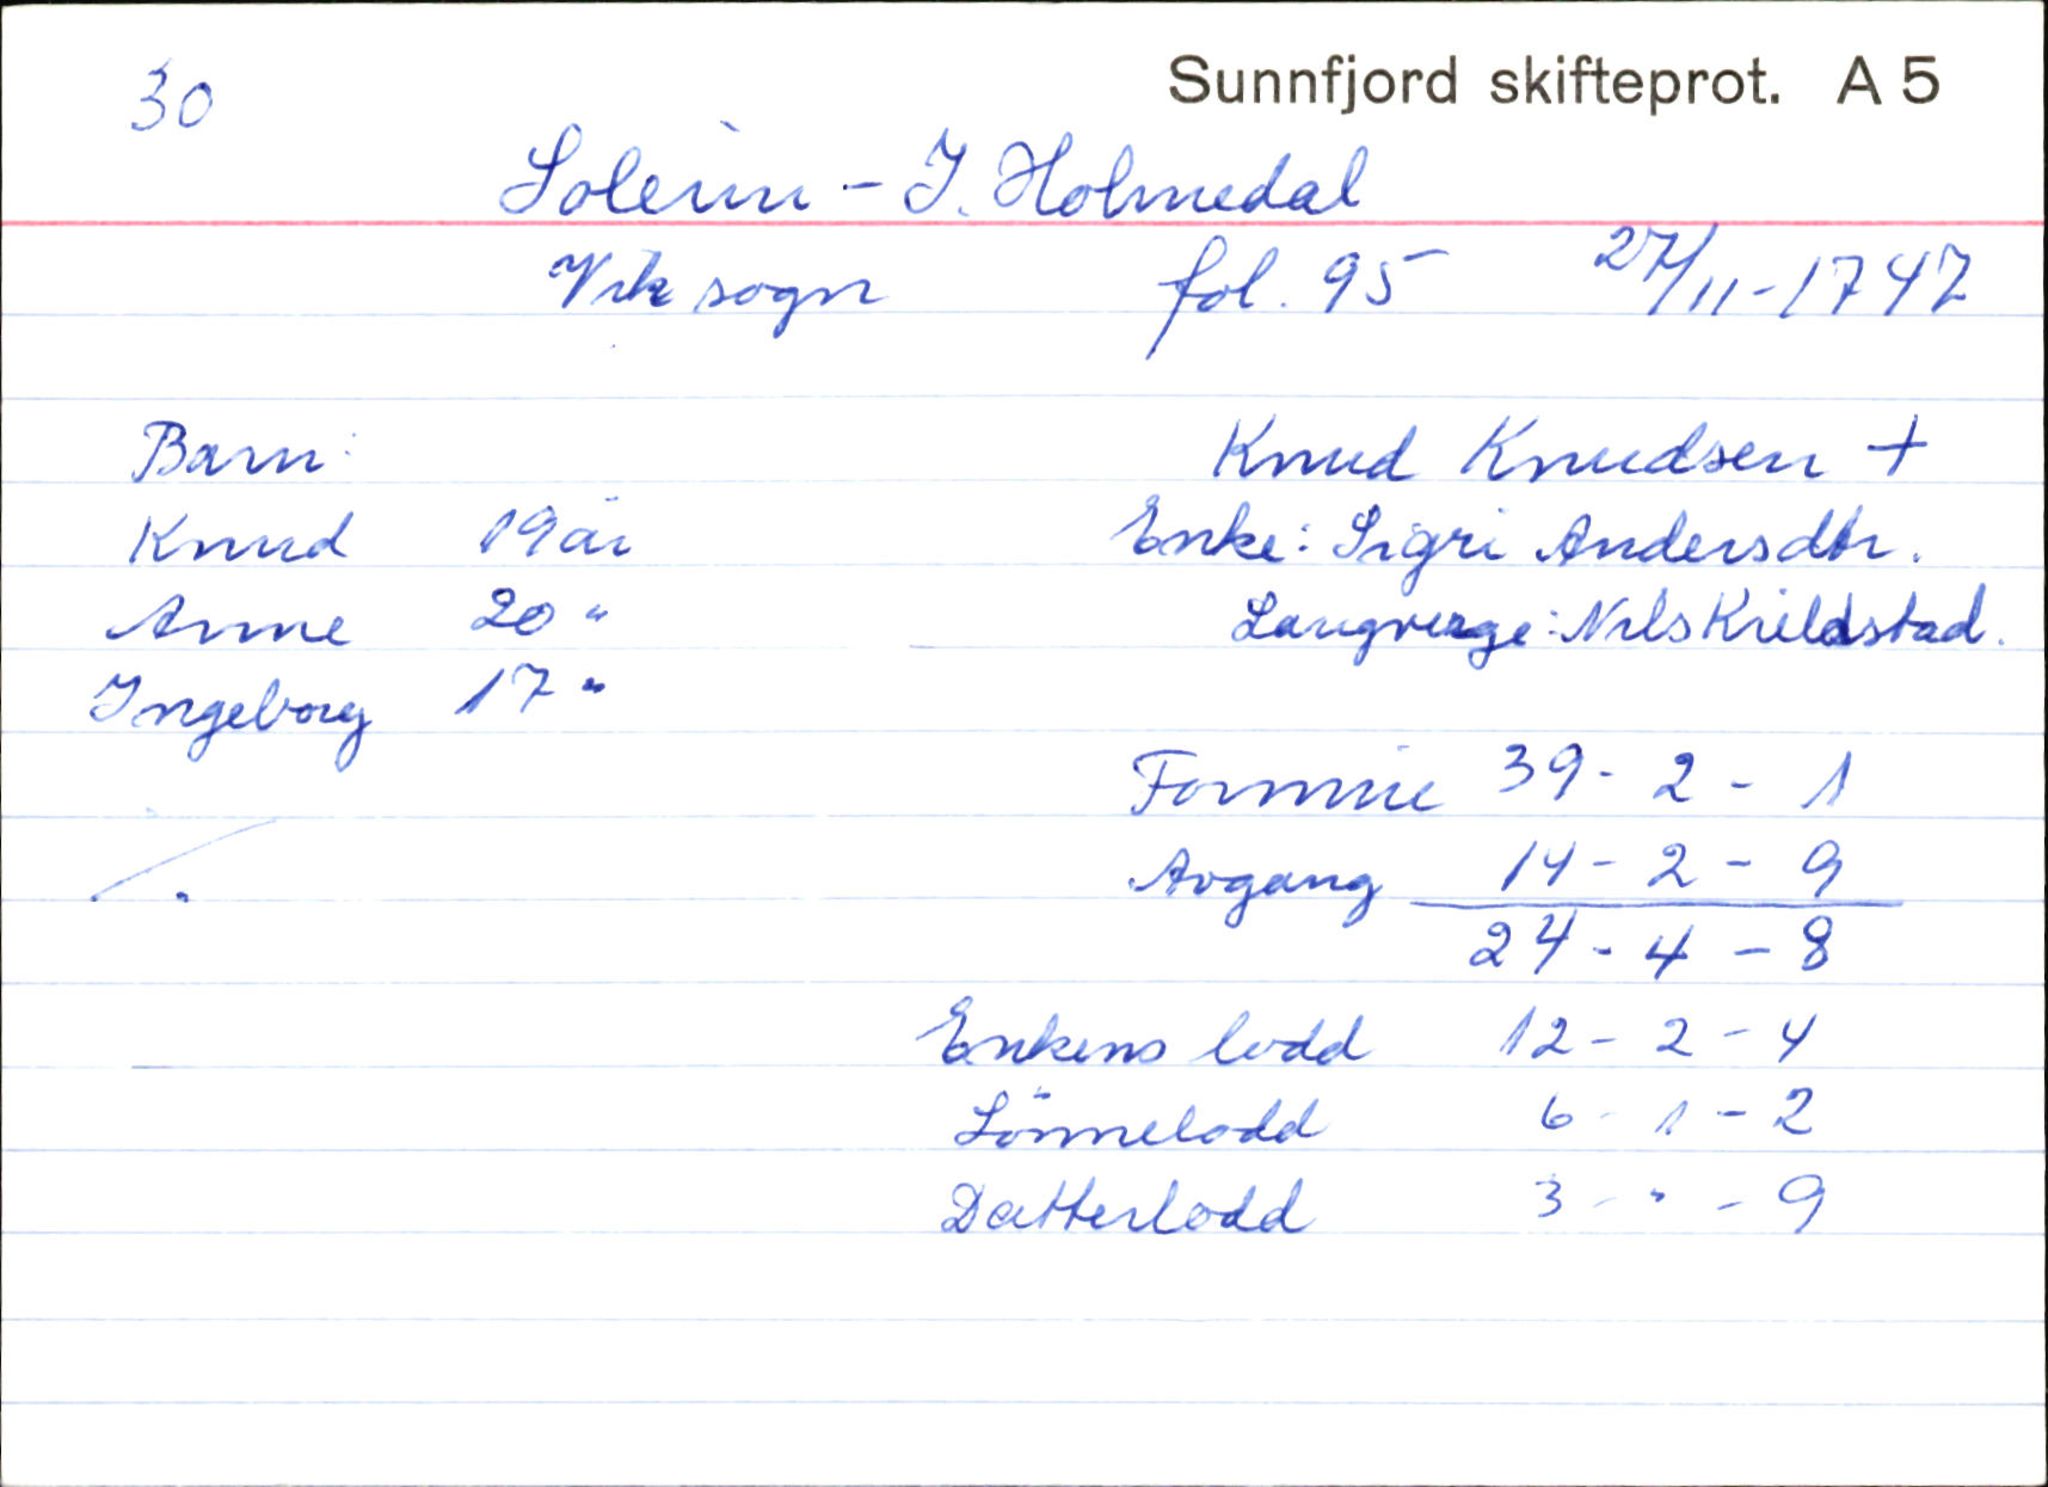 30
Sunnfjord skifteprot. A 5
Soleim - I. Holmedal
Vik sogn fol. 95 27/11-1747
Barn:
Knud 19 år
Anne 20 "
Ingeborg 17 "
Knud Knudsen +
Enke: Sigri Andersdtr.
Laugverge: Nils Kvildstad.
Formue 39 - 2 - 1
Avgang 14 - 2 - 9
24 - 4 - 8
Enkens lodd 12 - 2 - 4
Sönnelodd 6 - 1 - 2
Datterlodd 3 - " - 9